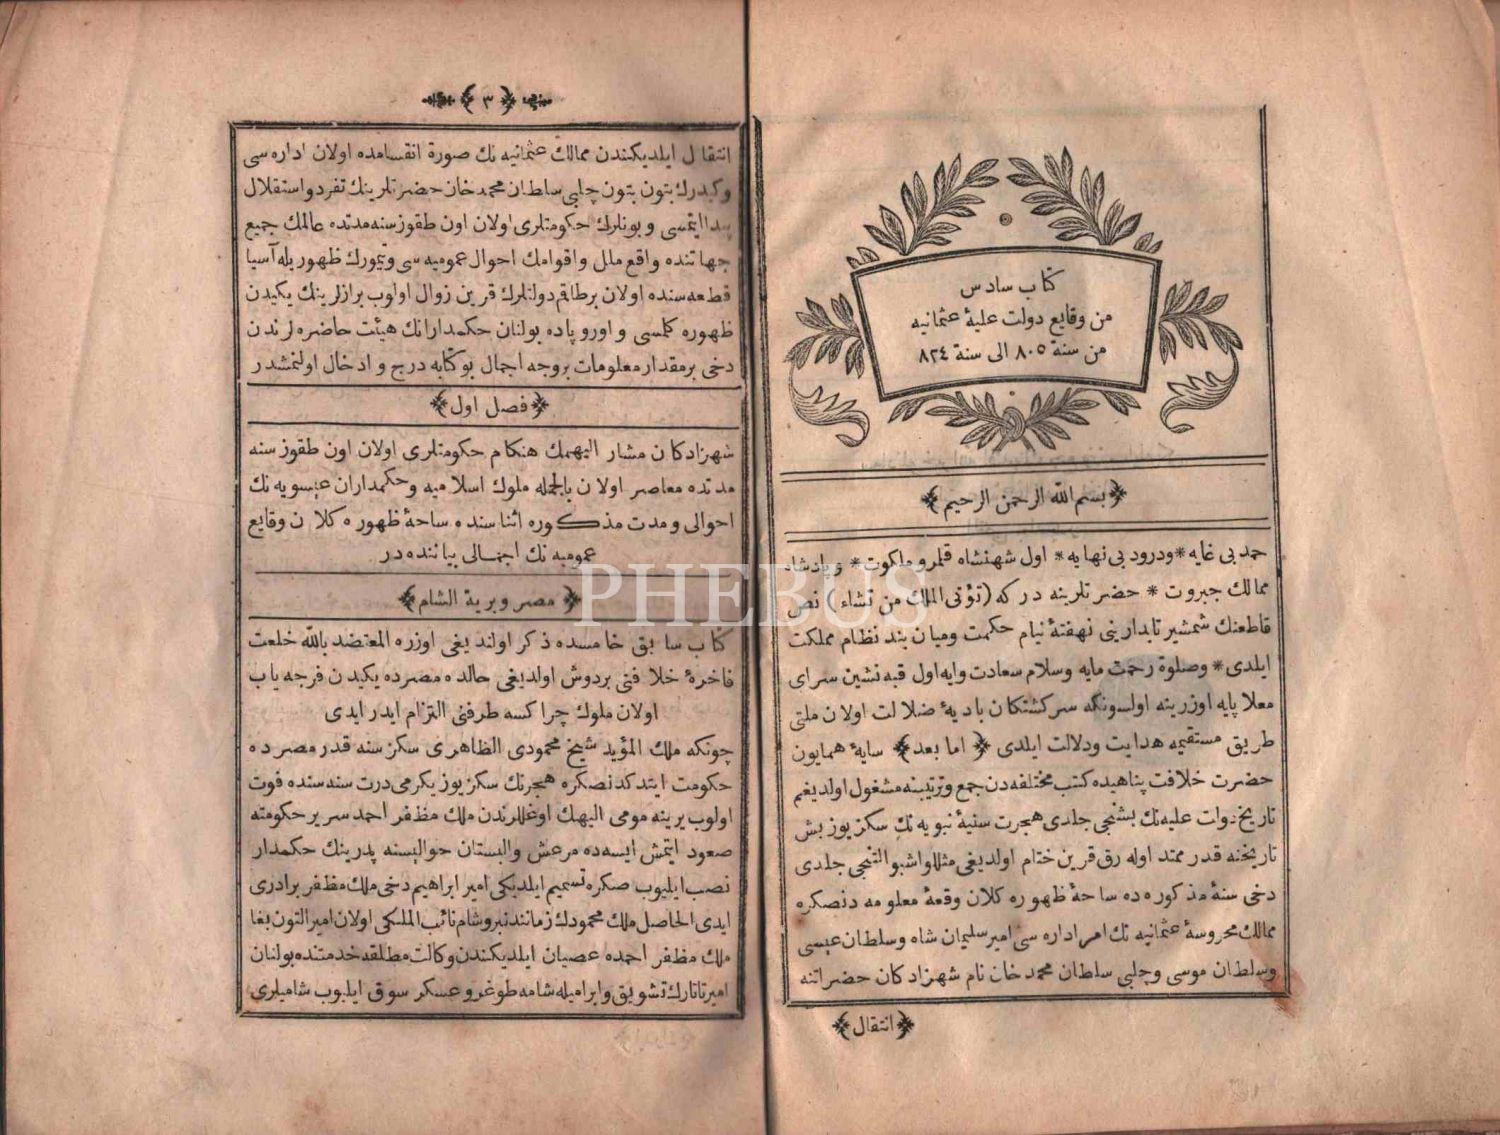 كتاب سادس
من وقايع دولت عليۀ عثمانيه
من سنة ٨٠٥ الى سنة ٨٢٤
﴿ بسم الله الرحمن الرحيم ﴾
حمد بى غايه * ودرود بى نهايه * اول شهنشاه قلمرو ملكوت * وپادشاه
ممالك جبروت * حضرتلرينه در كه (تؤتى الملك من تشاء) نص
قاطعنك شمشير تابدارينى نهفتۀ نيام حكمت وميان بند نظام مملكت
ايلدى * وصلوة رحمت مايه وسلام سعادت وايه اول قبه نشين سراى
معلا پايه اوزرينه اولسونكه سركشتكان باديۀ ضلالت اولان ملتى
طريق مستقيمه هدايت ودلالت ايلدى ﴿ اما بعد ﴾ سايۀ همايون
حضرت خلافت پناهيده كتب مختلفه دن جمع وترتيبنه مشغول اولديغم
تاريخ دولت عليه نك بشنجى جلدى هجرت سنيۀ نبويه نك سكزيوز بش
تاريخنه قدر ممتد اوله رق قرين ختام اولديغى مثللو اشبو التنجى جلدى
دخى سنۀ مذكوره ده ساحۀ ظهوره كلان وقعۀ معلومه دنصكره
ممالك محروسۀ عثمانيه نك امر اداره سى امير سليمان شاه وسلطان عيسى
وسلطان موسى وچلبى سلطان محمد خان نام شهزادكان حضراتنه
﴿ انتقال ﴾
﴿ ٣ ﴾
انتقال ايلديكندن ممالك عثمانيه نك صورة انقسامده اولان اداره سى
وكيدرك بتون بتون چلبى سلطان محمد خان حضرتلرينك تفرد واستقلال
پيدا ايتمسى وبونلرك حكومتلرى اولان اون طقوز سنه مدتده عالمك جميع
جهاتنده واقع ملل واقوامك احوال عموميه سى وتيمورك ظهوريله آسيا
قطعه سنده اولان برطاقم دولتلرك قرين زوال اولوب برازلرينك يكيدن
ظهوره كلمسى واوروپاده بولنان حكمدارانك هيئت حاضره لرندن
دخى برمقدار معلومات بروجه اجمال بوكتابه درج وادخال اولنمشدر
﴿ فصل اول ﴾
شهزادكان مشار اليهمك هنكام حكومتلرى اولان اون طقوز سنه
مدتده معاصر اولان بالجمله ملوك اسلاميه وحكمداران عيسويه نك
احوالى ومدت مذكوره اثناسنده ساحۀ ظهوره كلان وقايع
عموميه نك اجمالى بياننده در
﴿ مصر وبرية الشام ﴾
كتاب سابق خامسده ذكر اولنديغى اوزره المعتضد بالله خلعت
فاخرۀ خلافتى بردوش اولديغى حالده مصرده يكيدن فرجه ياب
اولان ملوك چراكسه طرفنى التزام ايدر ايدى
چونكه ملك المؤيد شيخ محمودى الظاهرى سكز سنه قدر مصرده
حكومت ايتدكدنصكره هجرتك سكزيوز يكرمى درت سنه سنده فوت
اولوب يرينه مومى اليهك اوغللرندن ملك مظفر احمد سرير حكومته
صعود ايتمش ايسه ده مرعش والبستان حواليسنه پدرينك حكمدار
نصب ايليوب صكره تسميم ايلديكى امير ابراهيم دخى ملك مظفر برادرى
ايدى الحاصل ملك محمودك زماننده نبرو شام نائب الملكى اولان امير التون بغا
ملك مظفر احمده عصيان ايلديكندن وكالت مطلقه خدمتنده بولنان
امير تاتارك تشويق وابراميله شامه طوغرو عسكر سوق ايليوب شاميلرى
PHEBUS